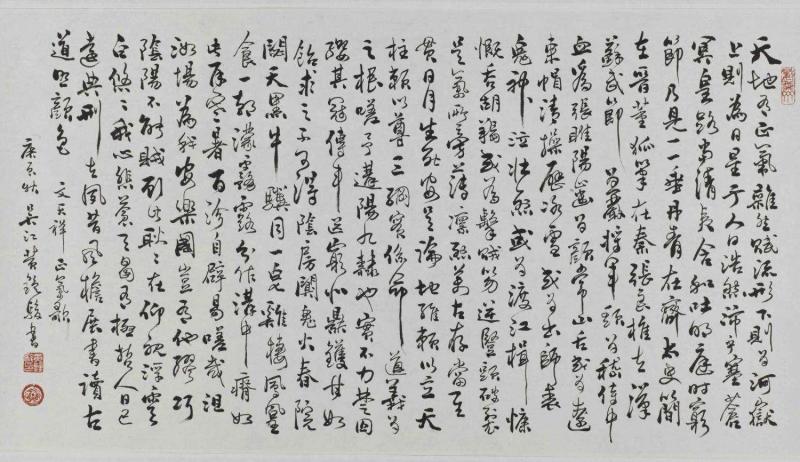 天地有正氣雜然賦流形下則為河嶽
上則為日星于人曰浩然沛乎塞蒼
冥皇路當清夷含和吐明庭時窮
節乃見一一垂丹青在齊太史簡
在晉董狐筆在秦張良椎在漢
蘇武節為嚴將軍頭為嵇侍中
血為張睢陽齒為顏常山舌或為遼
東帽清操厲冰雪或為出師表
鬼神泣壯烈或為渡江楫慷
慨吞胡羯或為擊賊笏逆豎頭破裂
是氣所旁薄凜烈萬古存當其
貫日月生死安足論地維賴以立天
柱賴以尊三綱實係命道義為
之根嗟予遘陽九隸也實不力楚囚
纓其冠傳車送窮北鼎鑊甘如
飴求之不可得陰房闃鬼火春院
閟天黑牛驥同一皂雞棲鳳凰
食一朝濛霧露分作溝中瘠如
此再寒暑百沴自辟易嗟哉沮
洳場為我安樂國豈有他繆巧
陰陽不能賊顧此耿耿在仰視浮雲
白悠悠我心悲蒼天曷有極哲人日已
遠典刑在夙昔風檐展書讀古
道照顏色 文天祥正氣歌
庚寅秋 吳江黃駿書